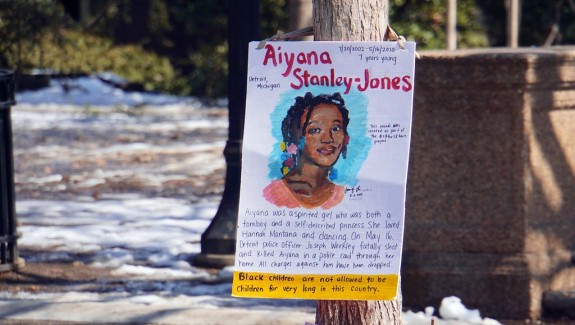 Aiyana
7/20/2002 - 5/16/2010
7 years young
Detroit,
Michigan
Stanley-Jones
Aiyana was a spirited girl who was both a
tomboy and a self-described princess. She loved
Hannah Montana and dancing. On May 16,
Detroit police officer Joseph Weekley fatally shot
and killed Aiyana in a police raid through her
home. All charges against him have been dropped.
Black children are not allowed to be
children for very long in this country.